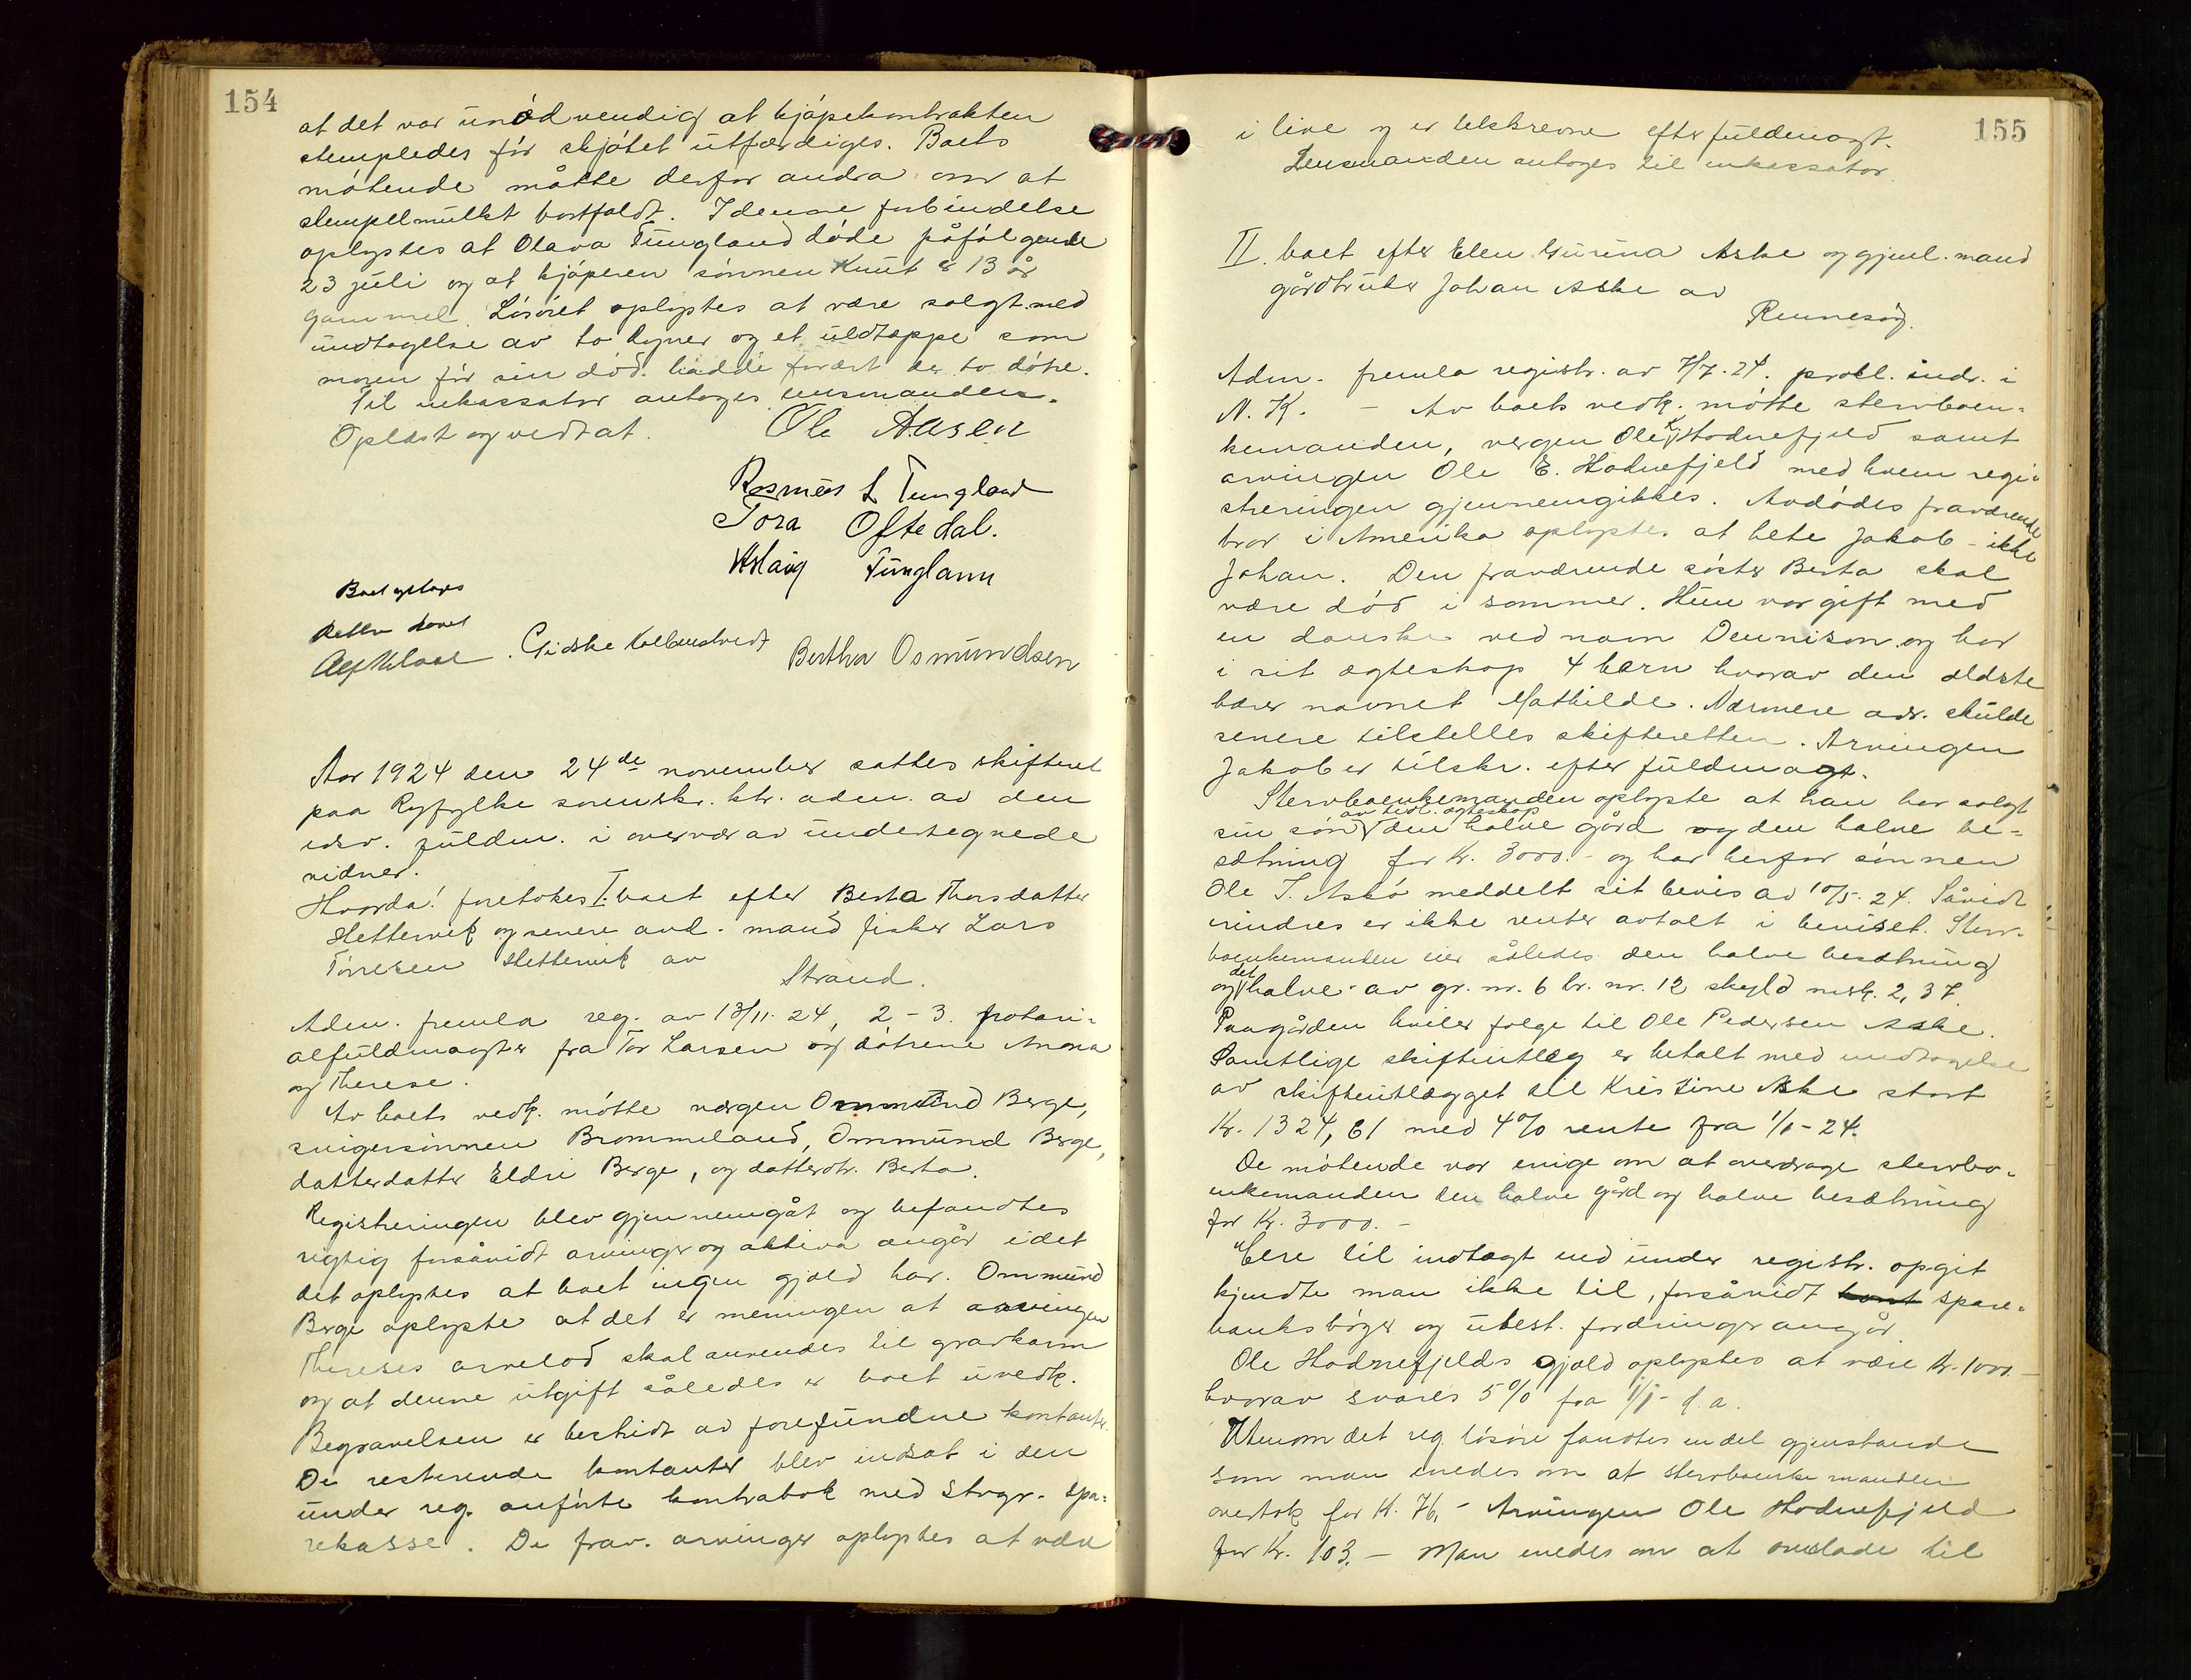 154
at det var unødvendig at kjøpekontrakten
stempledes før skjøtet utfærdiges. Boets
møtende måtte derfor andra om at
stempelmulkt bortfaldt. I denne forbindelse
oplystes at Olava Tungland døde påfølgende
23 juli og at kjøperen sønnen Knut er 13 år
gammel. Løsøret oplystes at være solgt med
undtagelse av to dyner og et uldtæppe som
moren før sin død hadde foræret de to døtre.
Til inkassator antoges lensmanden.
Oplæst og vedtat. Ole Aasen
Rasmus L Tungland
Tora Oftedal.
Aslaug Tungland
Boet optages
Retten hævet
Gidske Kolbenstvedt Bertha Osmundsen
Aar 1924 den 24de november sattes skifteret
paa Ryfylke sorenskr. ktr. adm. av den
edsv. fuldm. i overvær av undertegnede
vidner.
Hvorda! foretokes I. boet efter Berta Thorsdatter
Hettervik og senere avd. mand fisker Lars
Tørresen Hettervik av
Strand.
Adm. fremla reg. av 13/11. 24, 2 - 3. notari-
alfuldmagter fra Tor Larsen og døtrene Anna
og Therese.
Av boets vedk. møtte værgen Ommund Berge,
svigersønnen Brommeland, Ommund Berge,
datterdatter Eldri Berge, og datterdtr. Berta.
Registreringen blev gjennemgåt og befandtes
rigtig forsåvidt arvinger og aktiva angår idet
det oplystes at boet ingen gjæld har. Ommund
Berge oplyste at det er meningen at arvingen
Thereses arvelod skal anvendes til gravkarm
og at denne utgift således er boet uvedk.
Begravelsen er bestridt av forefundne kontanter.
De resterende kontanter blev indsat i den
under reg. anførte kontrabok med Stvgr. spa-
rekasse. De frav. arvinger oplystes at være
155
i live og er tilskrevne efter fuldmagt.
Lensmanden antoges til inkassator.
II. boet efter Elen Gurina Aske og gjenl. mand
gårdbruker Johan Aske av
Rennesøy.
Adm. fremla registr. av 7/7. 24. prokl. indr. i
N. K. - Av boets vedk. møtte stervboen-
kemanden, vergen Ole K. Hodnefjeld samt
arvingen Ole E. Hodnefjeld med hvem regi-
streringen gjennemgikkes. Avdødes fraværende
bror i Amerika oplystes at hete Jakob - ikke
Johan. Den fraværende søster Berta skal
være død i sommer. Hun var gift med
en danske ved navn Dennison og har
i sit ægteskap 4 børn hvorav den ældste
bærer navnet Mathilde. Nærmere adr. skulde
senere tilstelles skifteretten. Arvingen
Jakob er tilskr. efter fuldmagt.
Stervboenkemanden oplyste at han har solgt
av tidl. ægteskap
sin søn den halve gård og den halve be-
sætning for kr. 3000.- og har herfor sønnen
Ole J. Askø meddelt sit bevis av 10/5. 24. Såvidt
erindres er ikke renter avtalt i beviset. Sterv-
boenkemanden eier således den halve besætning
og det halve av gr. nr. 6 br. nr. 12 skyld mrk. 2,37.
Paagården hviler følge til Ole Pedersen Aske.
Samtlige skifteutlæg er betalt med undtagelse
av skifteutlægget til Kristine Aske stort
kr. 1324,61 med 4% rente fra 1/1-24.
De møtende var enige om at overdrage stervbo-
enkemanden den halve gård og halve besætning
for kr. 3000.-
Eere til indtægt end under registr. opgit
kjendte man ikke til, forsåvidt spare-
banksbøger og utest. fordringer angår.
Ole Hodnefjelds gjæld oplystes at være kr. 1000.-
hvorav svares 5% fra 1/1- d. a.
Utenom det reg. løsøre fandtes endel gjenstande
som man enedes om at stervboenkemanden
overtok for kr. 76,- Arvingen Ole Hodnefjeld
for kr. 103.- Man enedes om at overlade til